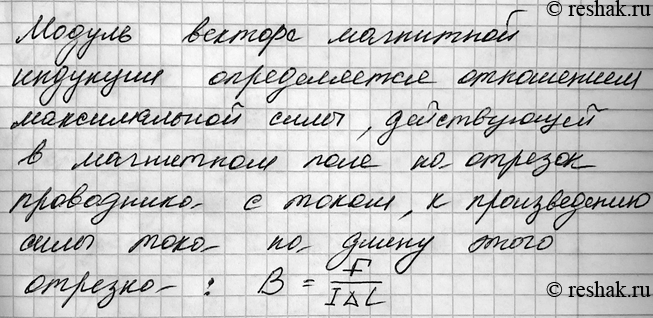 © reshak.ru
Модуль вектора магнитной
индукции определяется отношением
максимальной силы, действующей
в магнитном поле на отрезок
проводника с током, к произведению
силы тока на длину этого
отрезка: B = F/IΔL
© reshak.ru